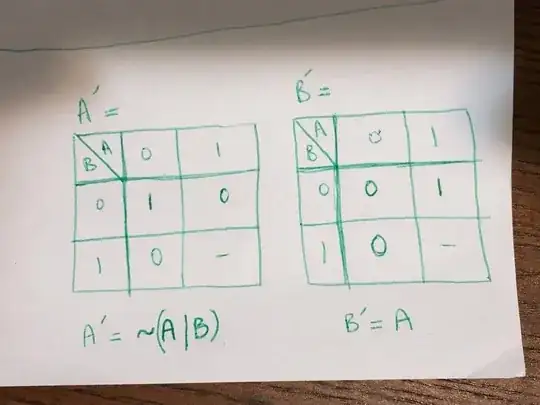 A' =
B A 0 1
0 1 0
1 0 -
A' = ~(A|B)
B' =
B A 0 1
0 0 1
1 0 -
B' = A